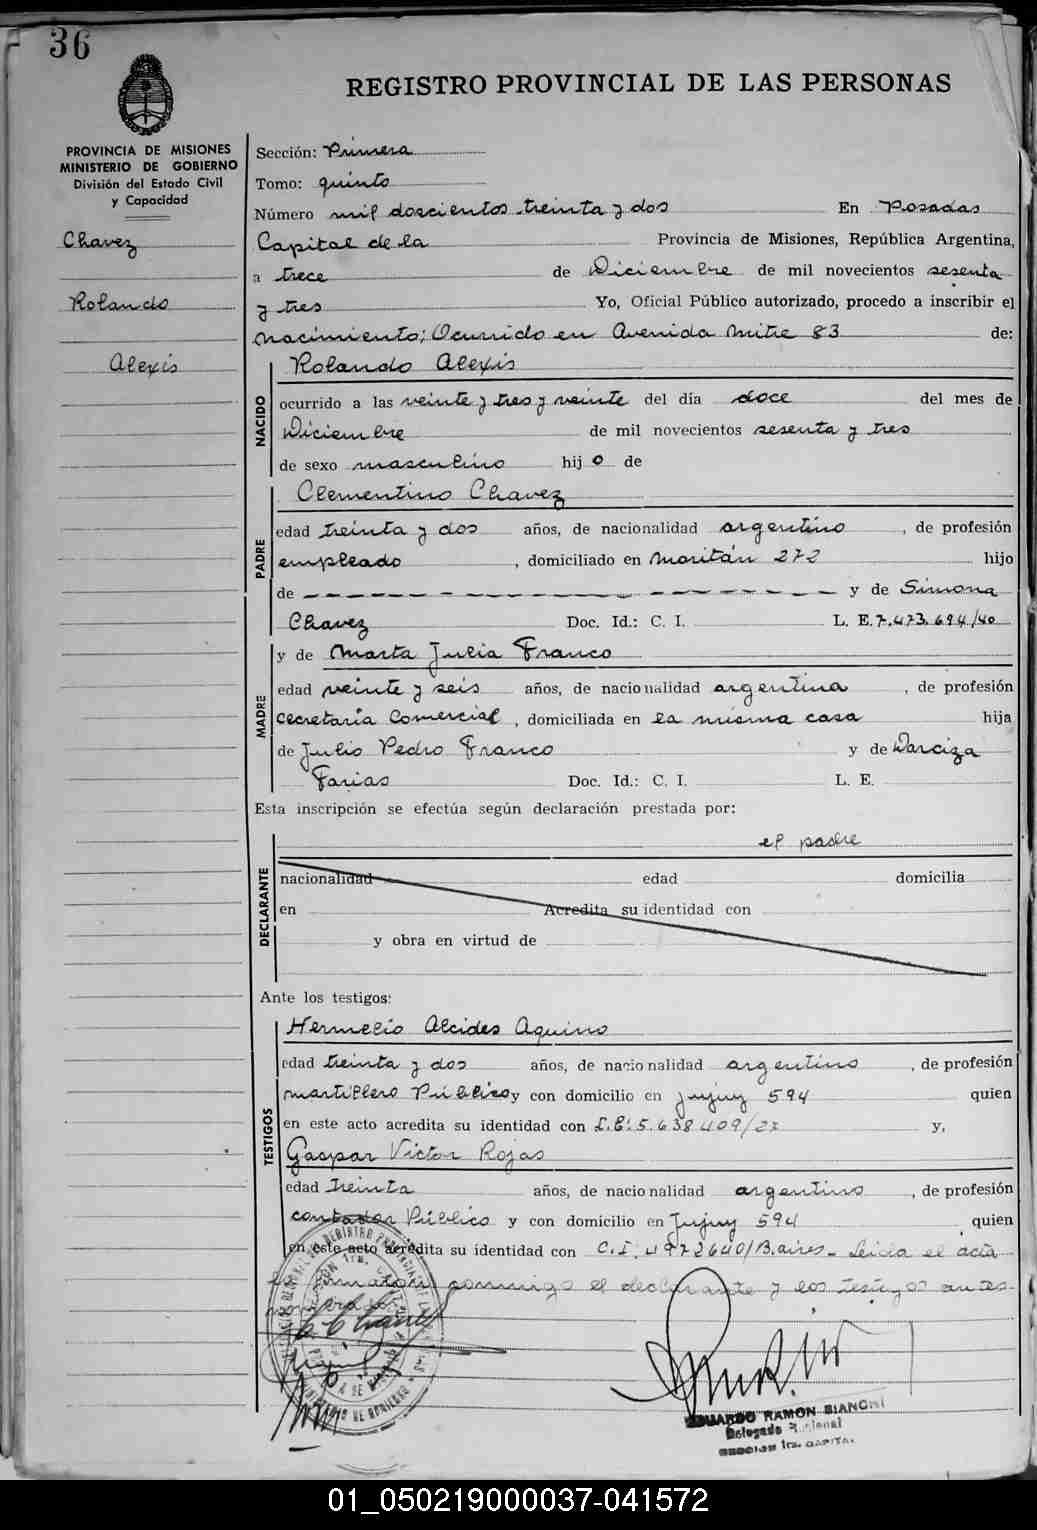 36
REGISTRO PROVINCIAL DE LAS PERSONAS
PROVINCIA DE MISIONES
MINISTERIO DE GOBIERNO
División del Estado Civil
y Capacidad
Chavez
Rolando
Alexis
Sección: Primera
Tomo: quinto
Número mil doscientos treinta y dos En Posadas
Capital de la Provincia de Misiones, República Argentina,
a trece de Diciembre de mil novecientos sesenta
y tres Yo, Oficial Público autorizado, procedo a inscribir el
nacimiento; Ocurrido en Avenida Mitre 83 de:
NACIDO
Rolando Alexis
ocurrido a las veinte y tres y veinte del día doce del mes de
Diciembre de mil novecientos sesenta y tres
de sexo masculino hij o de
PADRE
Clementino Chavez
edad treinta y dos años, de nacionalidad argentino, de profesión
empleado, domiciliado en Moritán 272 hijo
de — — — — — — — — — — — — y de Simona
Chavez Doc. Id.: C. I. L. E. 7.473.694/40
MADRE
y de Marta Julia Franco
edad veinte y seis años, de nacionalidad argentina, de profesión
secretaria Comercial, domiciliada en la misma casa hija
de Julio Pedro Franco y de Narciza
Farias Doc. Id.: C. I. L. E.
Esta inscripción se efectúa según declaración prestada por:
DECLARANTE
el padre
nacionalidad edad domicilia
en Acredita su identidad con
y obra en virtud de
Ante los testigos:
TESTIGOS
Hermelio Alcides Aquino
edad treinta y dos años, de nacionalidad argentino, de profesión
martillero Público y con domicilio en Jujuy 594 quien
en este acto acredita su identidad con L.E: 5.638.409/27 y,
Gaspar Victor Rojas
edad treinta años, de nacionalidad argentino, de profesión
contador Público y con domicilio en Jujuy 594 quien
en este acto acredita su identidad con C.I: 4972640/B.aires.- Leida el acta
conmigo el declarante y los testigos antes
EDUARDO RAMON BIANCHI
Delegado
SECCION 1ra. CAPITAL
01_050219000037-041572